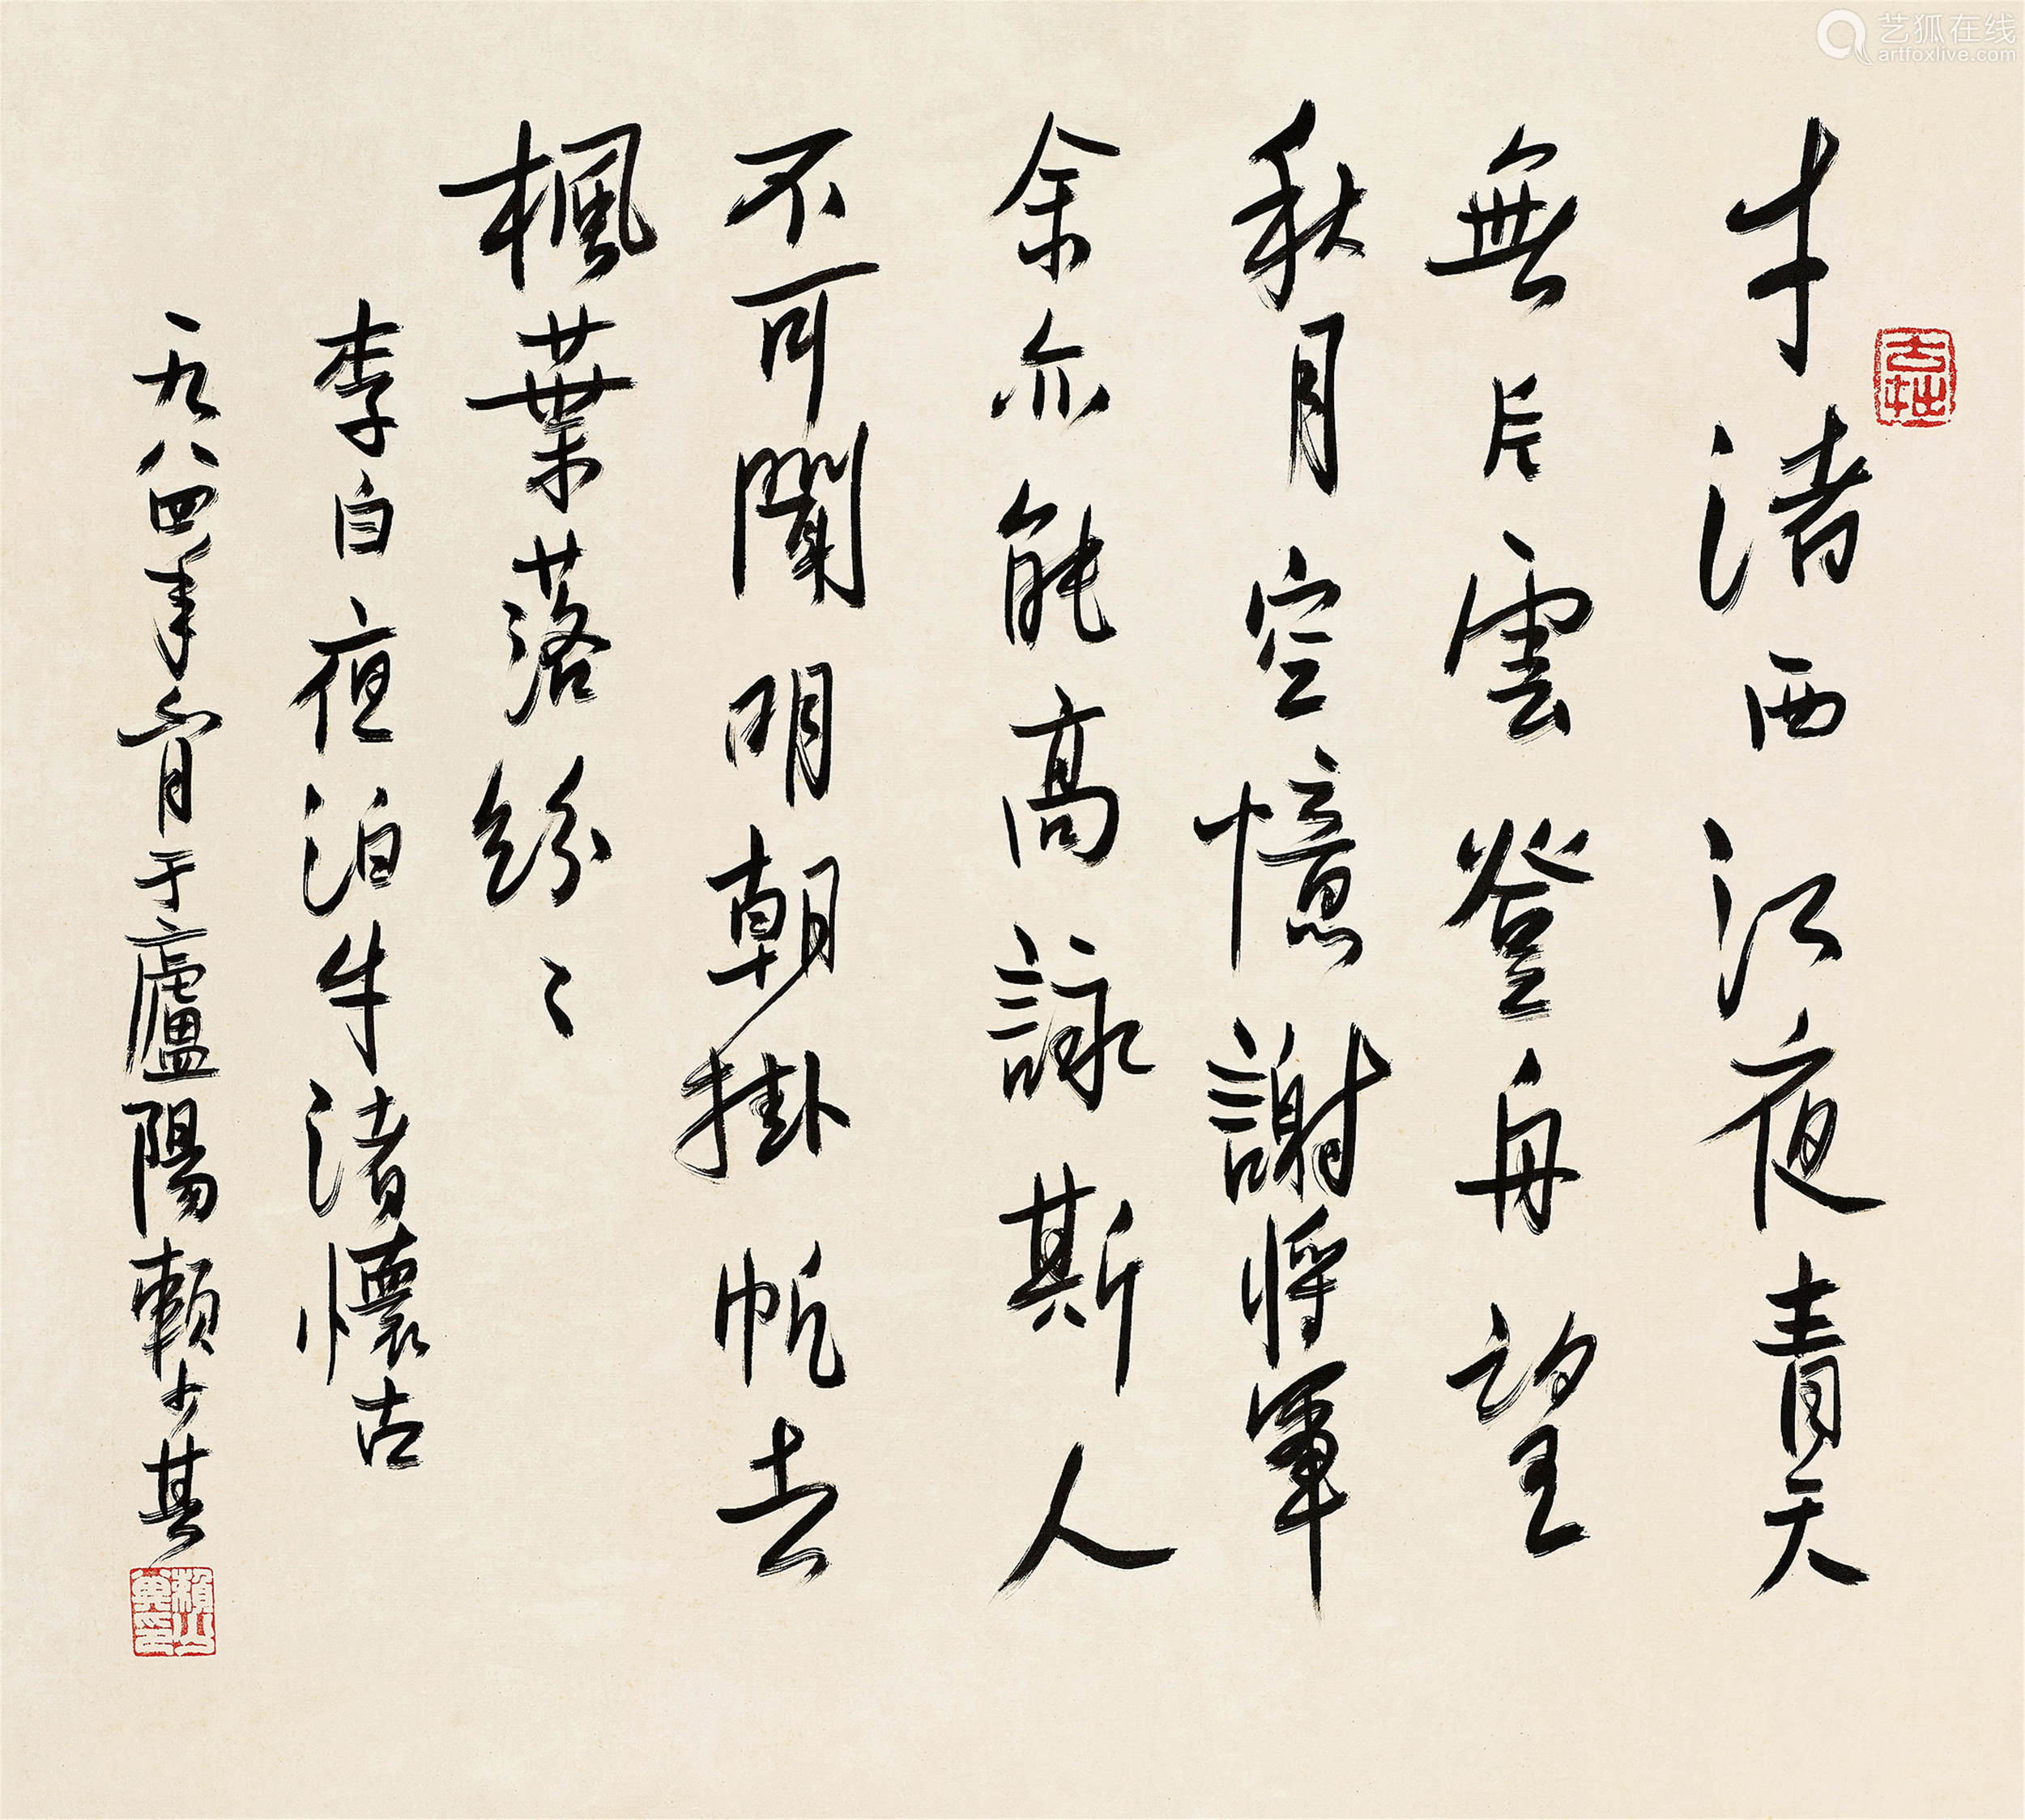 牛渚西江夜青天
無片雲登舟望
秋月空憶謝將軍
余亦能高詠斯人
不可聞明朝掛帆去
楓葉落紛〻
李白夜泊牛渚懷古
一九八四年月于廬陽賴少其
賴少其印
艺狐在线
artfoxlive.com